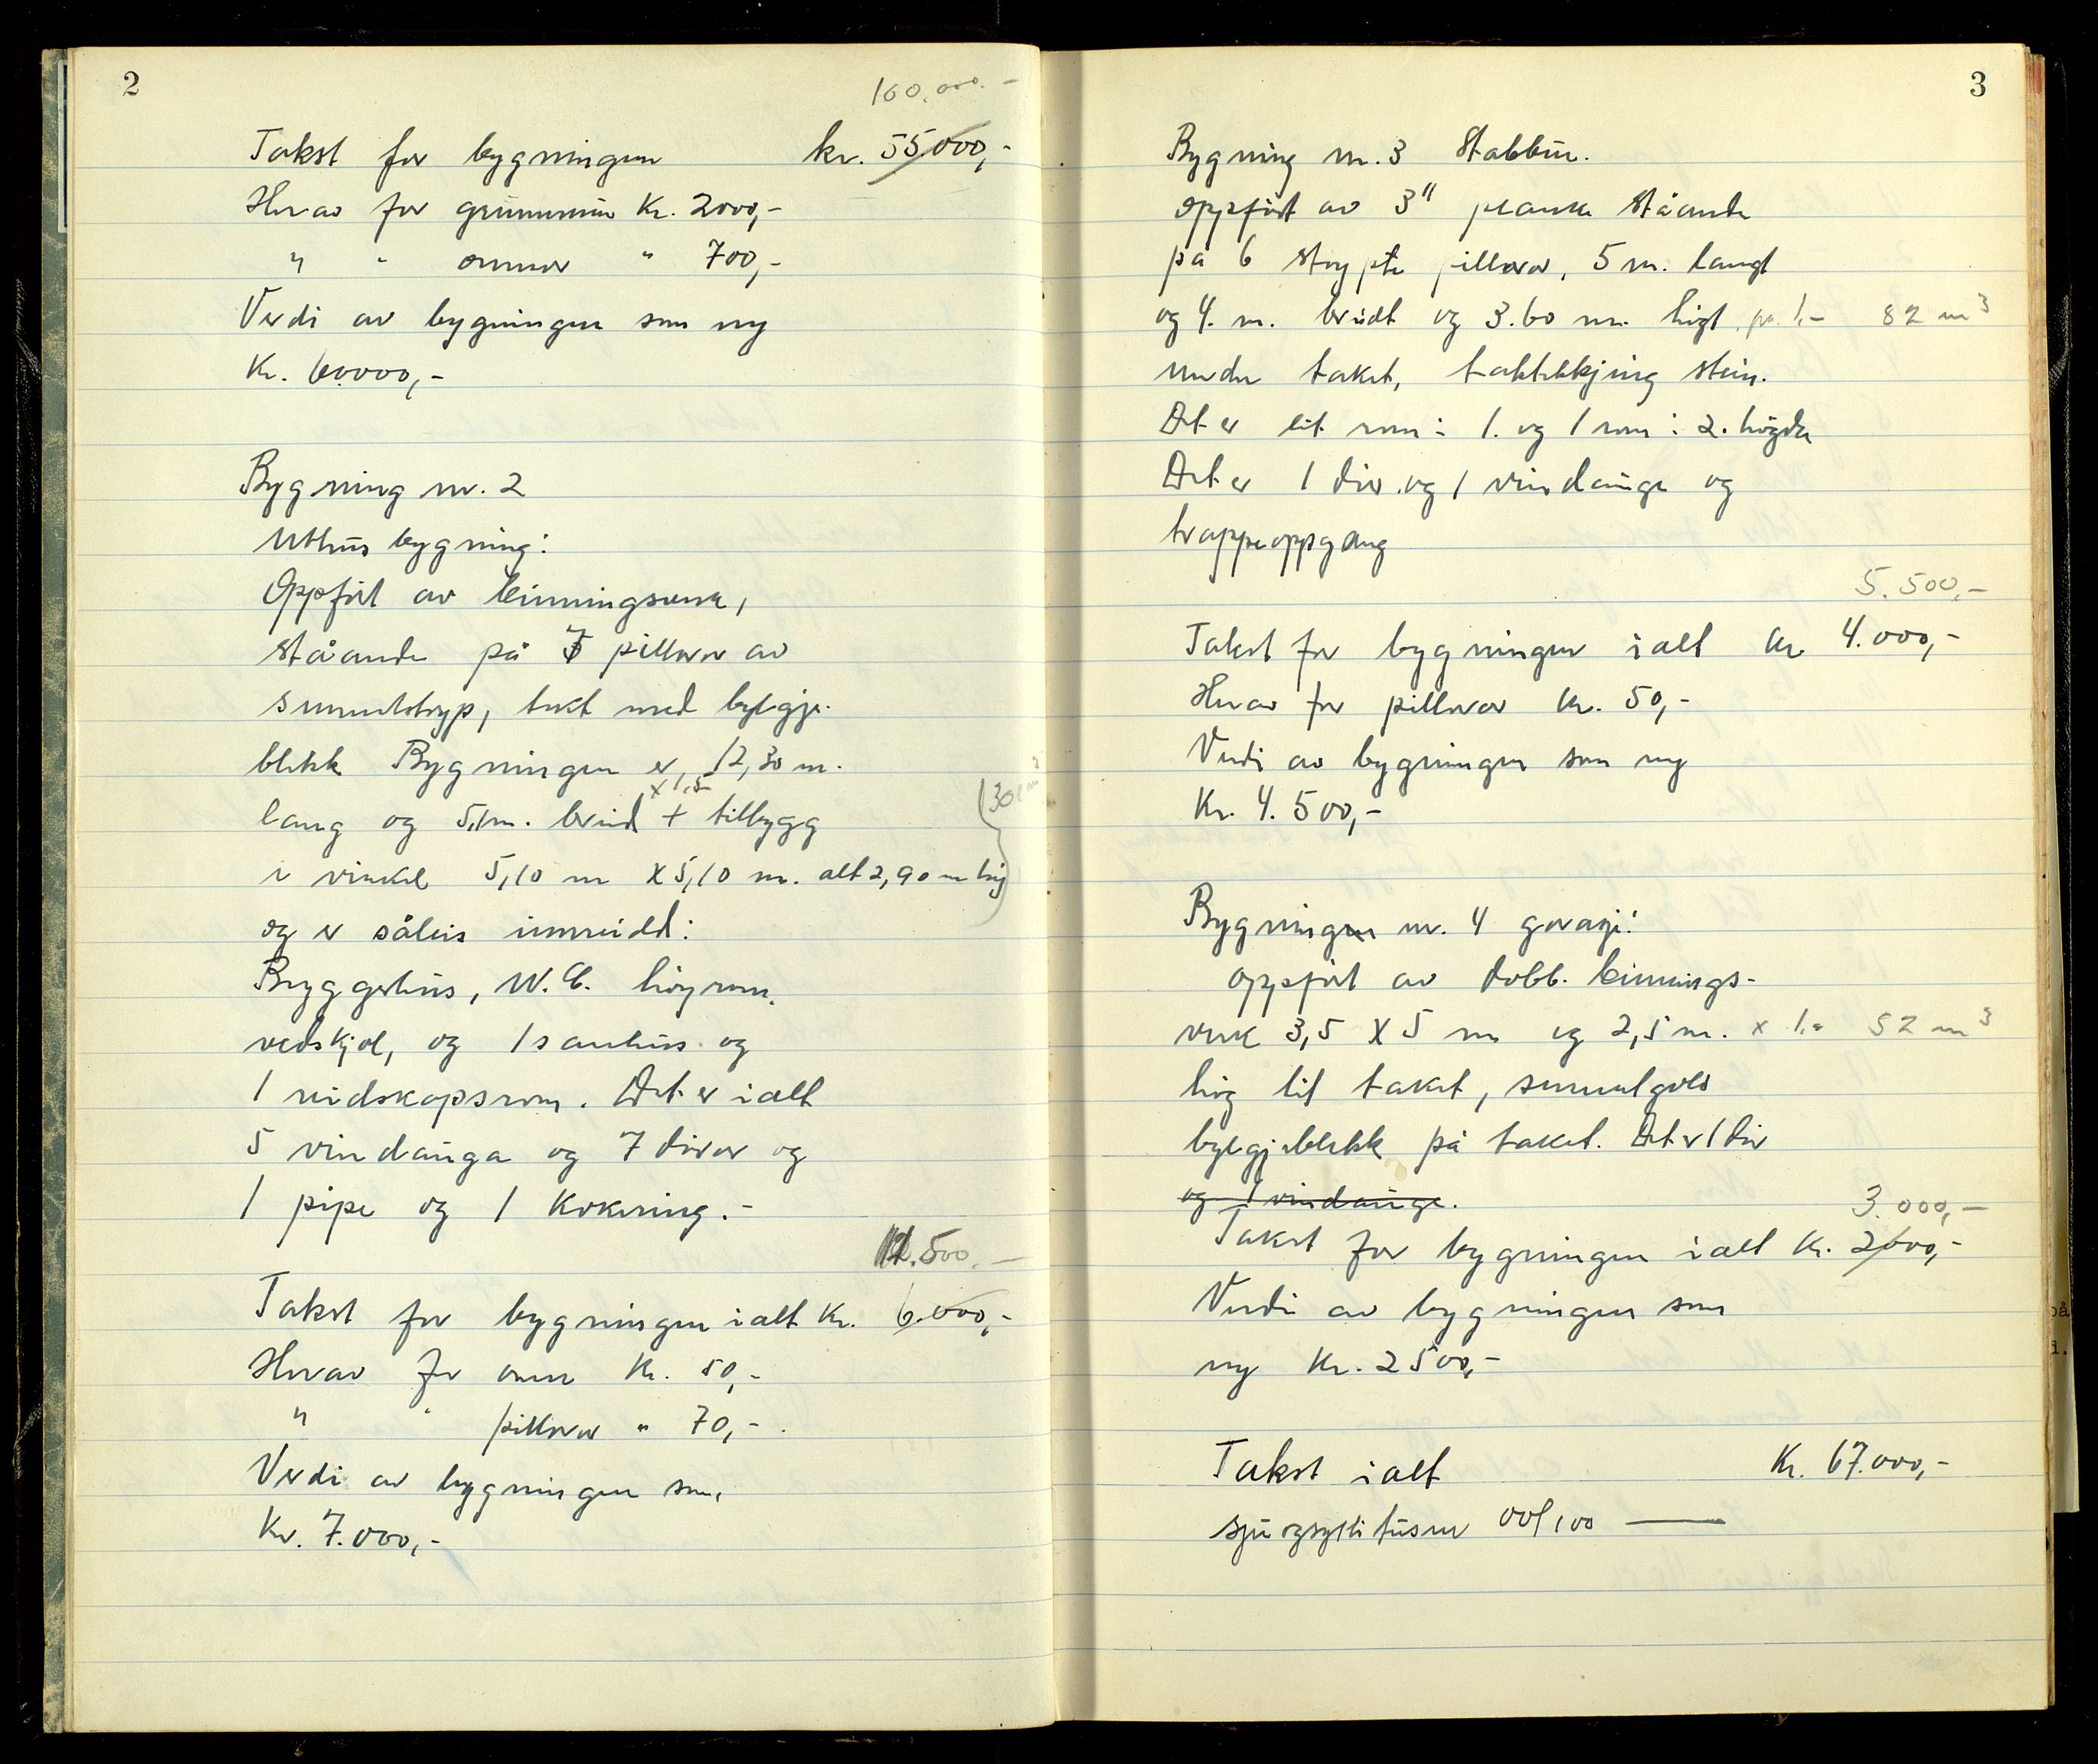 2
160.000.-
Takst for bygningen kr. 55.000,-
Herav for grunnmur Kr. 2000,-
" " omnar " 700,-
Verdi av bygningen som ny
Kr. 60.000,-
Bygning nr. 2
Uthus bygning:
Oppført av binningsverk,
ståande på 7 pillarar av
sementstøyp, tekt med bylgje-
blekk Bygningen er 12,30 m.
x 1,5
lang og 5,1 m. breid + tilbygg
i vinkel 5,10 m x 5,10 m. alt 2,90 m høg
og er såleis innreidd:
Bryggerhus, W.C. høyrom,
vedskjol, og 1 sauhus og
1 reidskapsrom. Det er ialt
5 vindauga og 7 dører og
1 pipe og 1 kokering.-
12.500.-
Takst for bygningen ialt Kr. 6.000,-
Herav for omn Kr. 50,-
" " pillarar " 70,-.
Verdi av bygningen som
Kr. 7.000,-
3
Bygning nr. 3 Stabbur.
oppført av 3" plank ståande
på 6 støypte pillarar, 5 m. langt
og 4. m. breidt og 3.60 m. høgt 82 m³
under taket, taktekkjing stein.
Det er eit rom i 1. og 1 rom i 2. høgda
Det er 1 dør og 1 vindauge og
trappeoppgang
5.500,-
Takst for bygningen ialt kr 4.000,-
Herav for pillarar Kr. 50,-
Verdi av bygningen som ny
Kr. 4.500,-
Bygningen nr. 4 garasje:
oppført av dobb. binnings-
verk 3,5 x 5 m og 2,5 m. 52 m³
høg til taket, sementgolv
bylgjeblekk på taket. Det er 1 dør
og 1 vindauge.
3.000,-
Takst for bygningen ialt Kr. 2000,-
Verdi av bygningen som
ny Kr. 2500,-
Takst ialt Kr. 67.000,-
sjuogsyttitusen 00/100